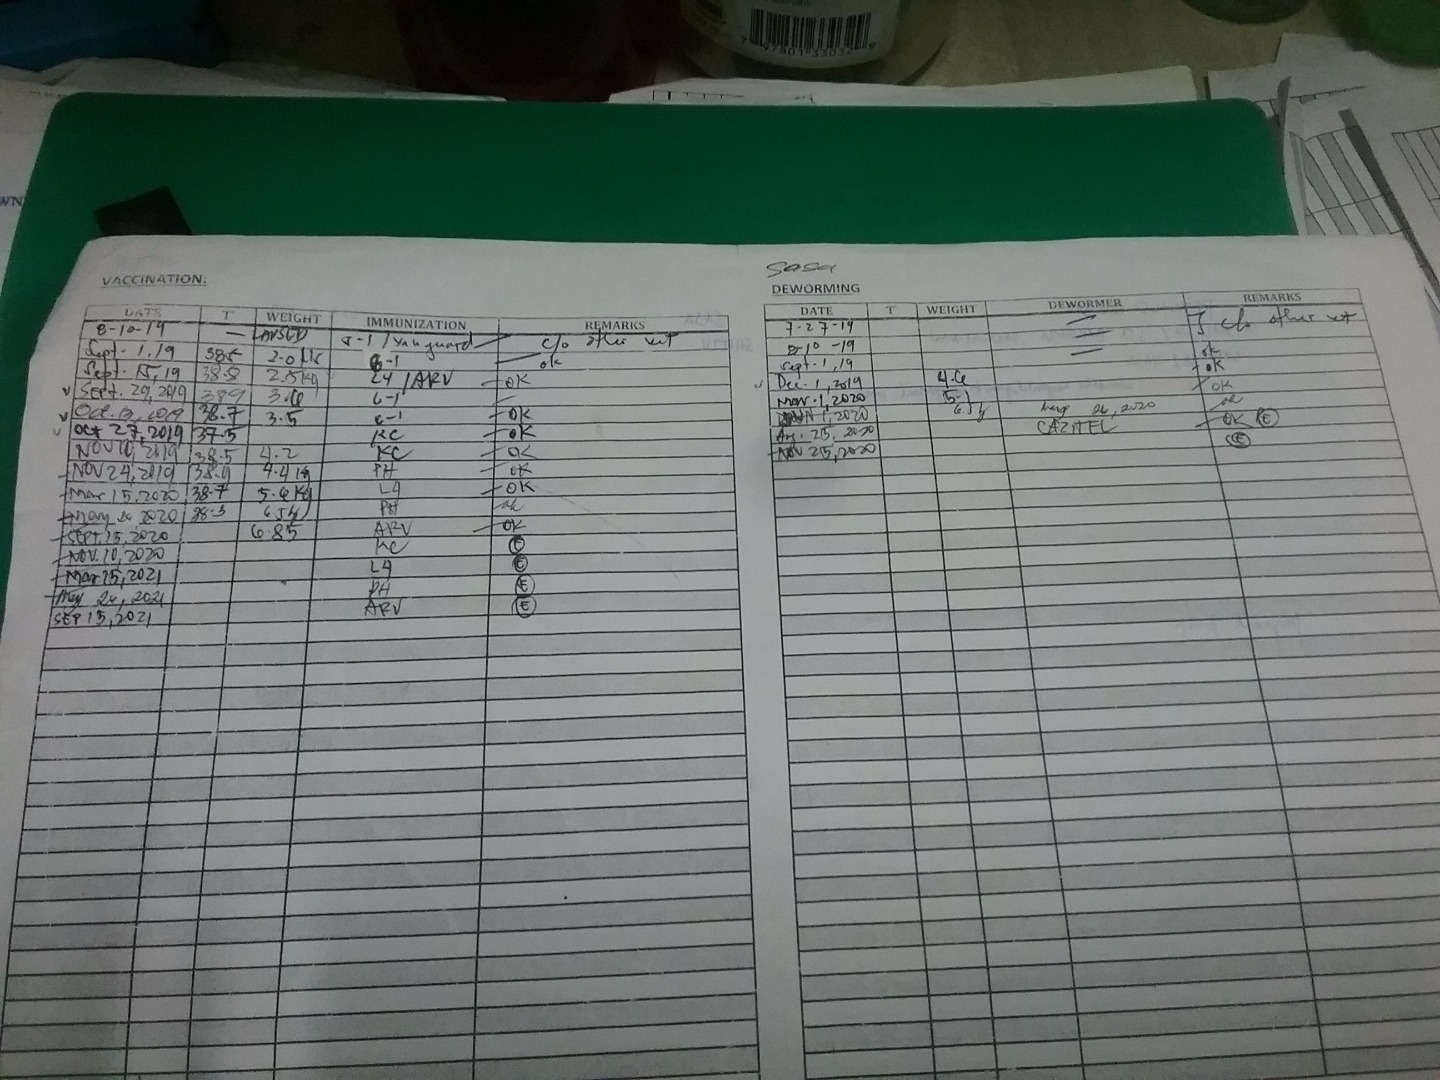 VACCINATION:
DATE T WEIGHT IMMUNIZATION REMARKS
8-10-19 — 5-1 / Vanguard c/o other vet
Sept. 1, 19 38.5 2.0 6-1 ok
Sept. 15, 19 38.8 2.5 kg L4 / ARV OK
Sept. 29, 2019 3.6 6-1
Oct. 2019 38.7 3.5 6-1 OK
Oct 27, 2019 37.5 KC OK
NOV 10, 2019 38.5 4.2 KC OK
NOV 24, 2019 38.9 4.4 kg PH OK
Mar 15, 2020 38.7 5.4 kg L4 OK
2020 38.3 PH ok
SEPT. 15, 2020 6.85 ARV OK
NOV. 10, 2020 KC E
Mar 15, 2021 L4 E
2021 PH E
SEP 15, 2021 ARV E
Sasa
DEWORMING
DATE T WEIGHT DEWORMER REMARKS
7-27-19 c/o other vet
8-10-19
Sept. 1, 19 ok
Dec. 1, 2019 4.6 OK
Mar. 1, 2020 OK
1, 2020 26, 2020 ok
Aug. 25, 2020 CAZITEL OK E
NOV 25, 2020 E